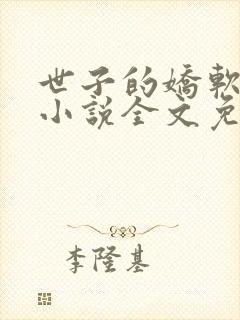 世子的嬌軟
小說全文免
李隆基